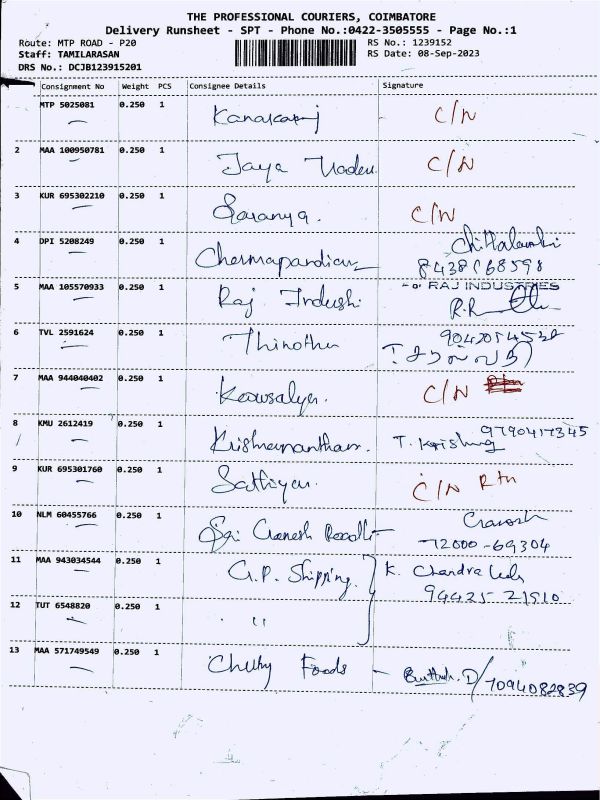 THE PROFESSIONAL COURIERS, COIMBATORE
Delivery Runsheet - SPT - Phone No.:0422-3505555 - Page No.:1
Route: MTP ROAD - P20 RS No.: 1239152
Staff: TAMILARASAN RS Date: 08-Sep-2023
DRS No.: DCJB123915201
Consignment No Weight PCS Consignee Details Signature
MTP 5025081 0.250 1 C/N
2 MAA 100950781 0.250 1 Jaya C/N
3 KUR 695302210 0.250 1 Saranya. C/N
4 DPI 5208249 0.250 1
5 MAA 105570933 0.250 1 Raj RAJ INDUSTRIES
6 TVL 2591624 0.250 1
7 MAA 944040402 0.250 1 Kowsalya. C/N
8 KMU 2612419 0.250 1 T. 9790417345
9 KUR 695301760 0.250 1 Sathiya. C/N Rtn
10 NLM 60455766 0.250 1 Sri Ganesh
72000-69304
11 MAA 943034544 0.250 1 G.P. Shipping. K.
94425 21510
12 TUT 6548820 0.250 1 "
13 MAA 571749549 0.250 1 Foods 7094082839